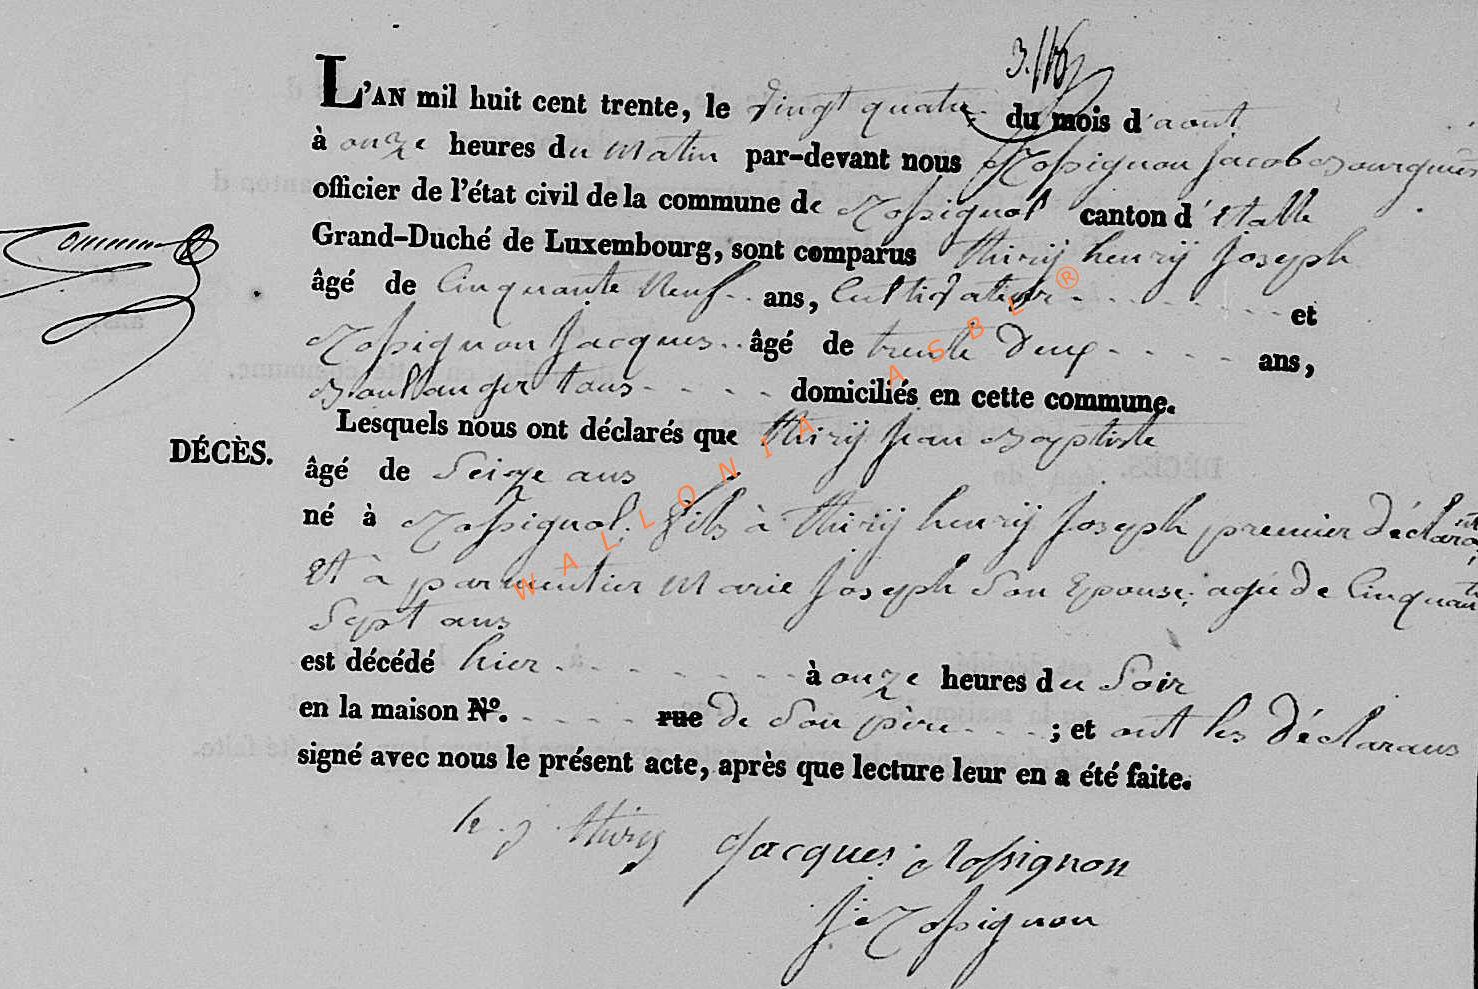 L'AN mil huit cent trente, le vingt quatre du mois d'aout
à onze heures du matin par-devant nous Rossignon Jacob Bourguemestre
officier de l'état civil de la commune de Rossignol canton d'Etalle
Grand-Duché de Luxembourg, sont comparus thirÿ henrÿ Joseph
âgé de Cinquante Neuf ans, Cultivateur et
Rossignon Jacques âgé de trente Deux ans,
Boullanger tous domiciliés en cette commune.
Lesquels nous ont déclarés que thirÿ Jean Baptiste
DÉCÈS.
âgé de Seize ans
né à Rossignol, fils à thirÿ henrÿ Joseph premier déclarant
Et à parmentier Marie Joseph Son Epouse, agée de Cinquante
Sept ans
est décédé hier à onze heures du Soir
en la maison Nº. rue de Son père ; et ont les Déclarans
signé avec nous le présent acte, après que lecture leur en a été faite.
h. j. thiry Jacques Rossignon
J. Rossignon
WALLONIA ASBL ®